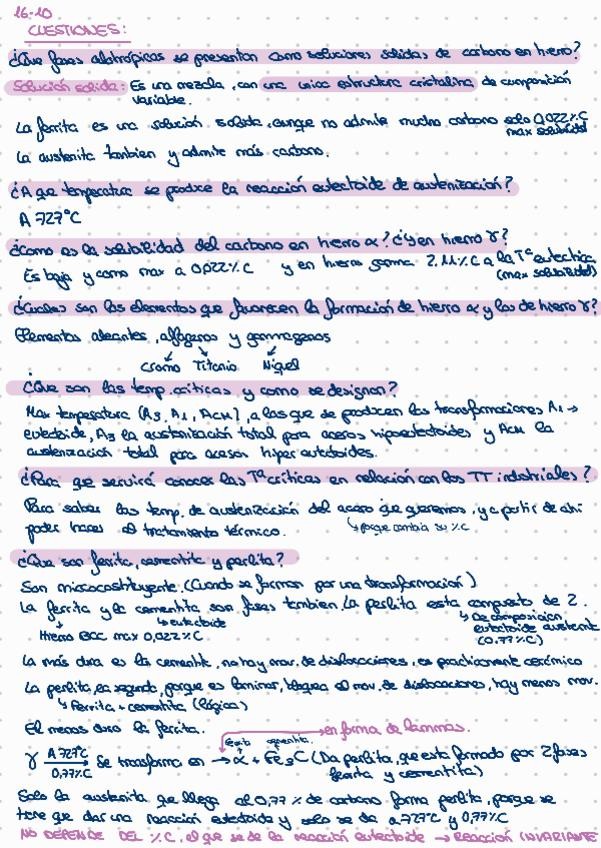 16-10
CUESTIONES:
¿Que fases alotrópicas se presentan como soluciones solidas de carbono en hierro?
Solución solida: Es una mezcla, con una unica estructura cristalina de composición
variable.
La ferrita es una solución solida, aunque no admite mucho carbono solo 0,022%C
max solubilidad
La austenita tambien y admite más carbono.
¿A que temperatura se produce la reacción eutectoide de austenización?
A 727°C
¿Como es la solubilidad del carbono en hierro α? ¿Y en hierro γ?
Es baja y como max a 0,022%C y en hierro gamma 2,11%C a la Tª eutectica
(max solubilidad)
¿Cuales son los elementos que favorecen la formación de hierro α y los de hierro γ?
Elementos aleantes, alfagenos y gammagenos
Cromo Titanio Niquel
¿Que son las temp. criticas y como se designan?
Max temperatura (A3, A1, Acm), a las que se producen las transformaciones A1 →
eutectoide, A3 la austenización total para aceros hipoeutectoides y Acm la
austenización total para aceros hipereutectoides.
¿Para que servirá conocer las Tª criticas en relación con los TT industriales?
Para saber las temp. de austenización del acero que queremos, y a partir de ahi
poder hacer el tratamiento térmico. ↳ porque cambia su %C
¿Que son ferrita, cementita y perlita?
Son microcostituyente. (Cuando se forman por una transformación)
La ferrita y la cementita son fases tambien. La perlita esta compuesto de 2.
↳ eutectoide ↳ De composición
Hierro BCC max 0,022%C eutectoide austenita
(0,77%C)
La más dura es la cementita, no hay mov. de dislocaciones, es practicamente cerámico
La perlita, es segundo, porque es laminar, bloquea el mov. de dislocaciones, hay menos mov.
↳ Ferrita + cementita (lógica)
El menos duro la ferrita. → en forma de laminas.
ferrita cementita
γ A 727°C 0,77%C Se transforma en → α + Fe3C (Da perlita, que esta formado por 2 fases
ferrita y cementita)
Solo la austenita que llega al 0,77% de carbono forma perlita, porque se
tiene que dar una reacción eutectoide y solo se da a 727°C y 0,77%C
NO DEPENDE DEL %C, el que se de la reacción eutectoide → REACCIÓN INVARIANTE